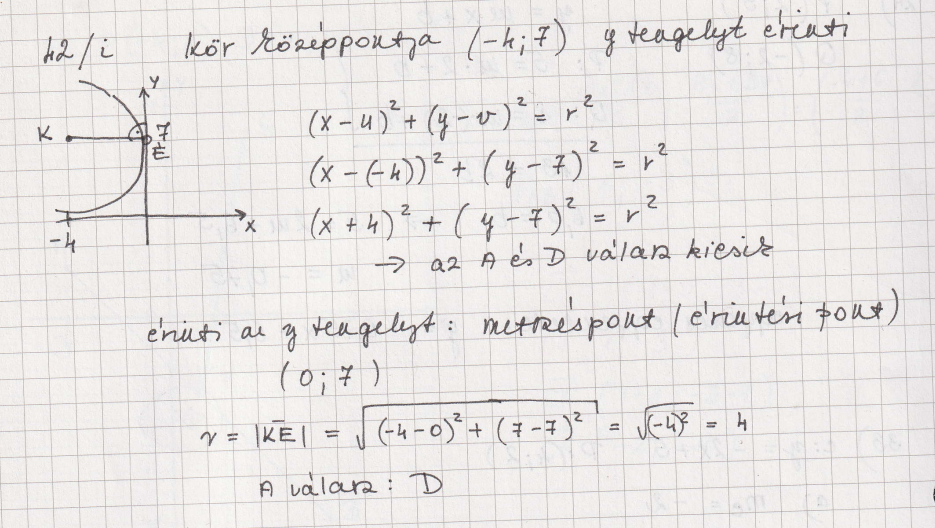 42/i kör középpontja (-4; 7) y tengelyt érinti
y
K 7
É
x
-4
(x - u)² + (y - v)² = r²
(x - (-4))² + (y - 7)² = r²
(x + 4)² + (y - 7)² = r²
→ az A és D válasz kiesik
érinti az y tengelyt: metszéspont (érintési pont)
(0; 7)
r = |KE| = √((-4 - 0)² + (7 - 7)²) = √(-4)² = 4
A válasz: D